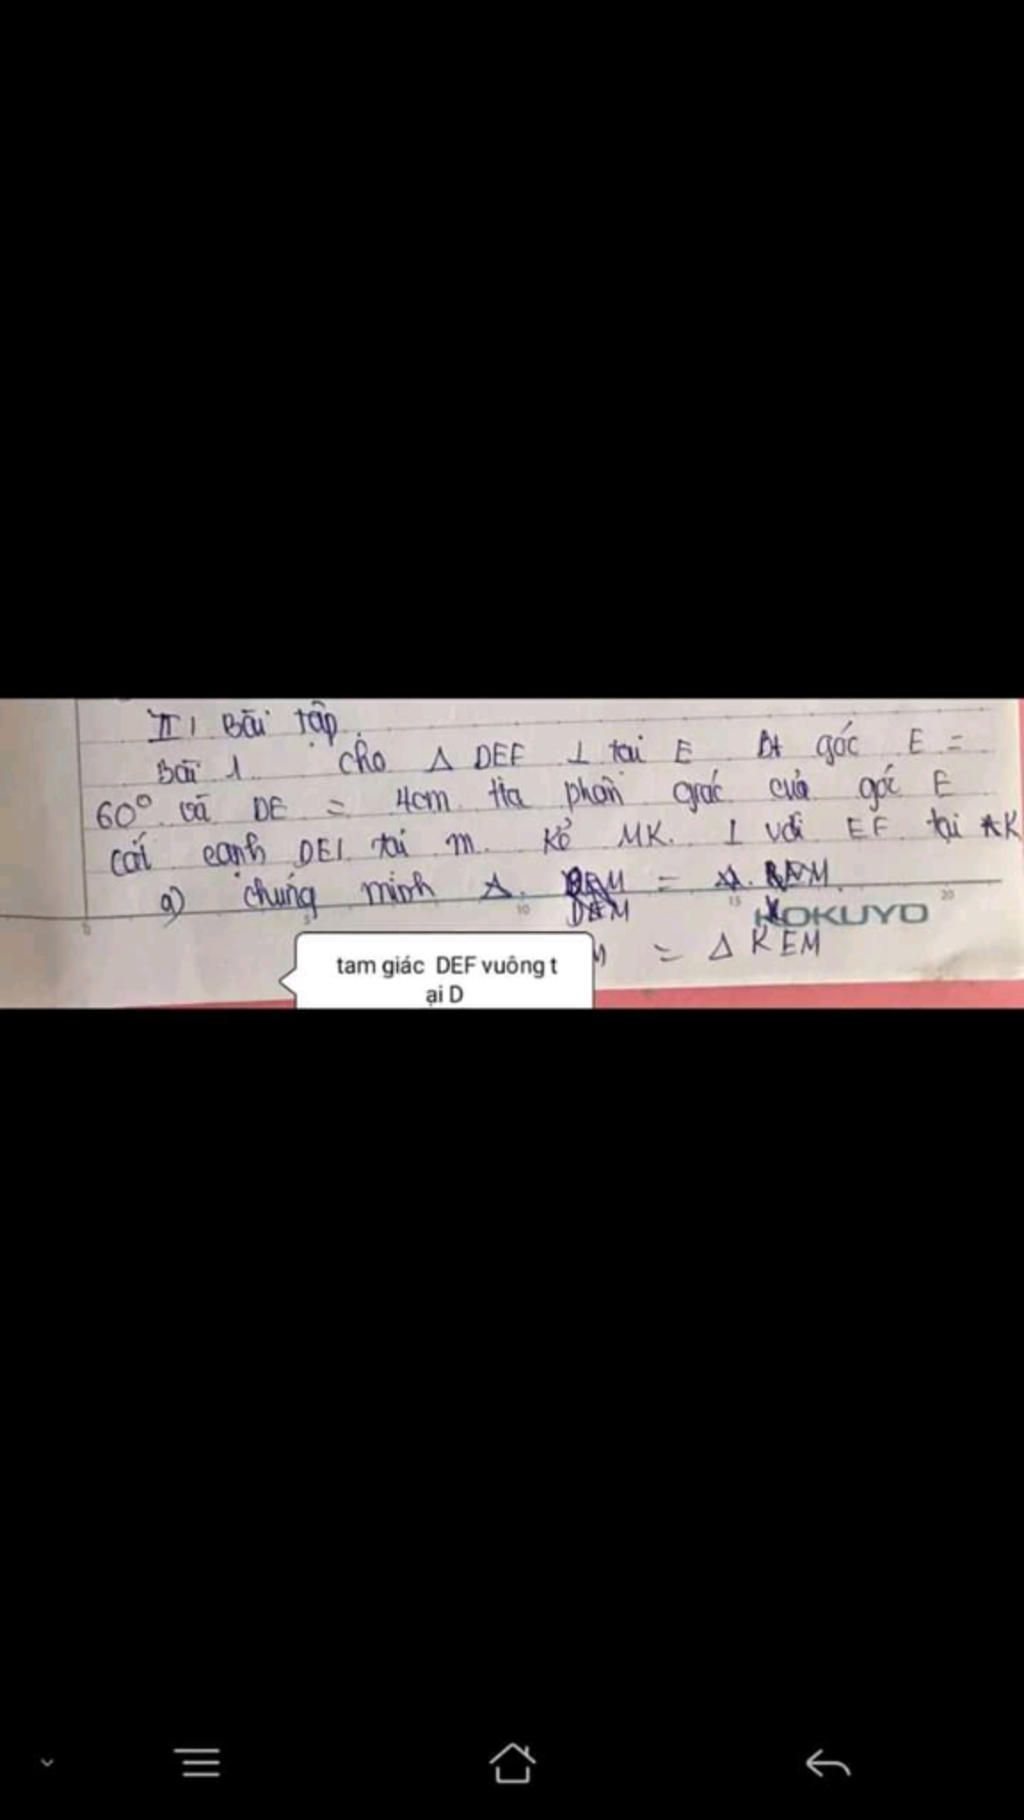 II, Bài tập.
Bài 1. cho Δ DEF ⊥ tại E Bt góc E =
60° và DE = 4cm tia phân giác của góc E
cắt cạnh DEI tại m. Kẻ MK. ⊥ với EF tại K
a) chứng minh Δ. = 
DEM
KOKUYO
= Δ KEM
tam giác DEF vuông t
ại D